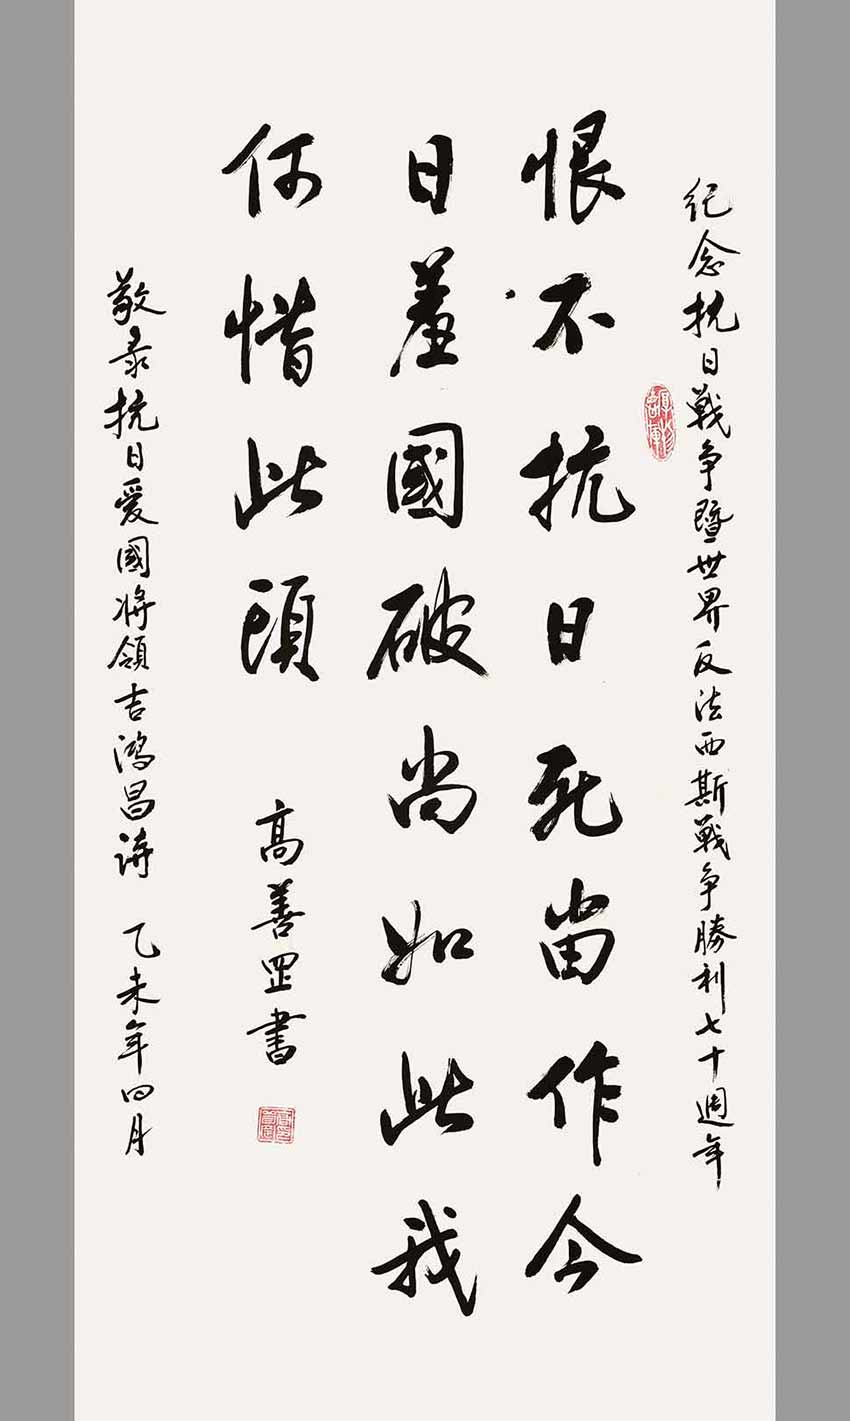 纪念抗日戰争暨世界反法西斯戰争勝利七十週年
恨不抗日死留作今
日羞國破尚如此我
何惜此頭
高善罡書
敬录抗日爱國将领吉鸿昌詩 乙未年四月